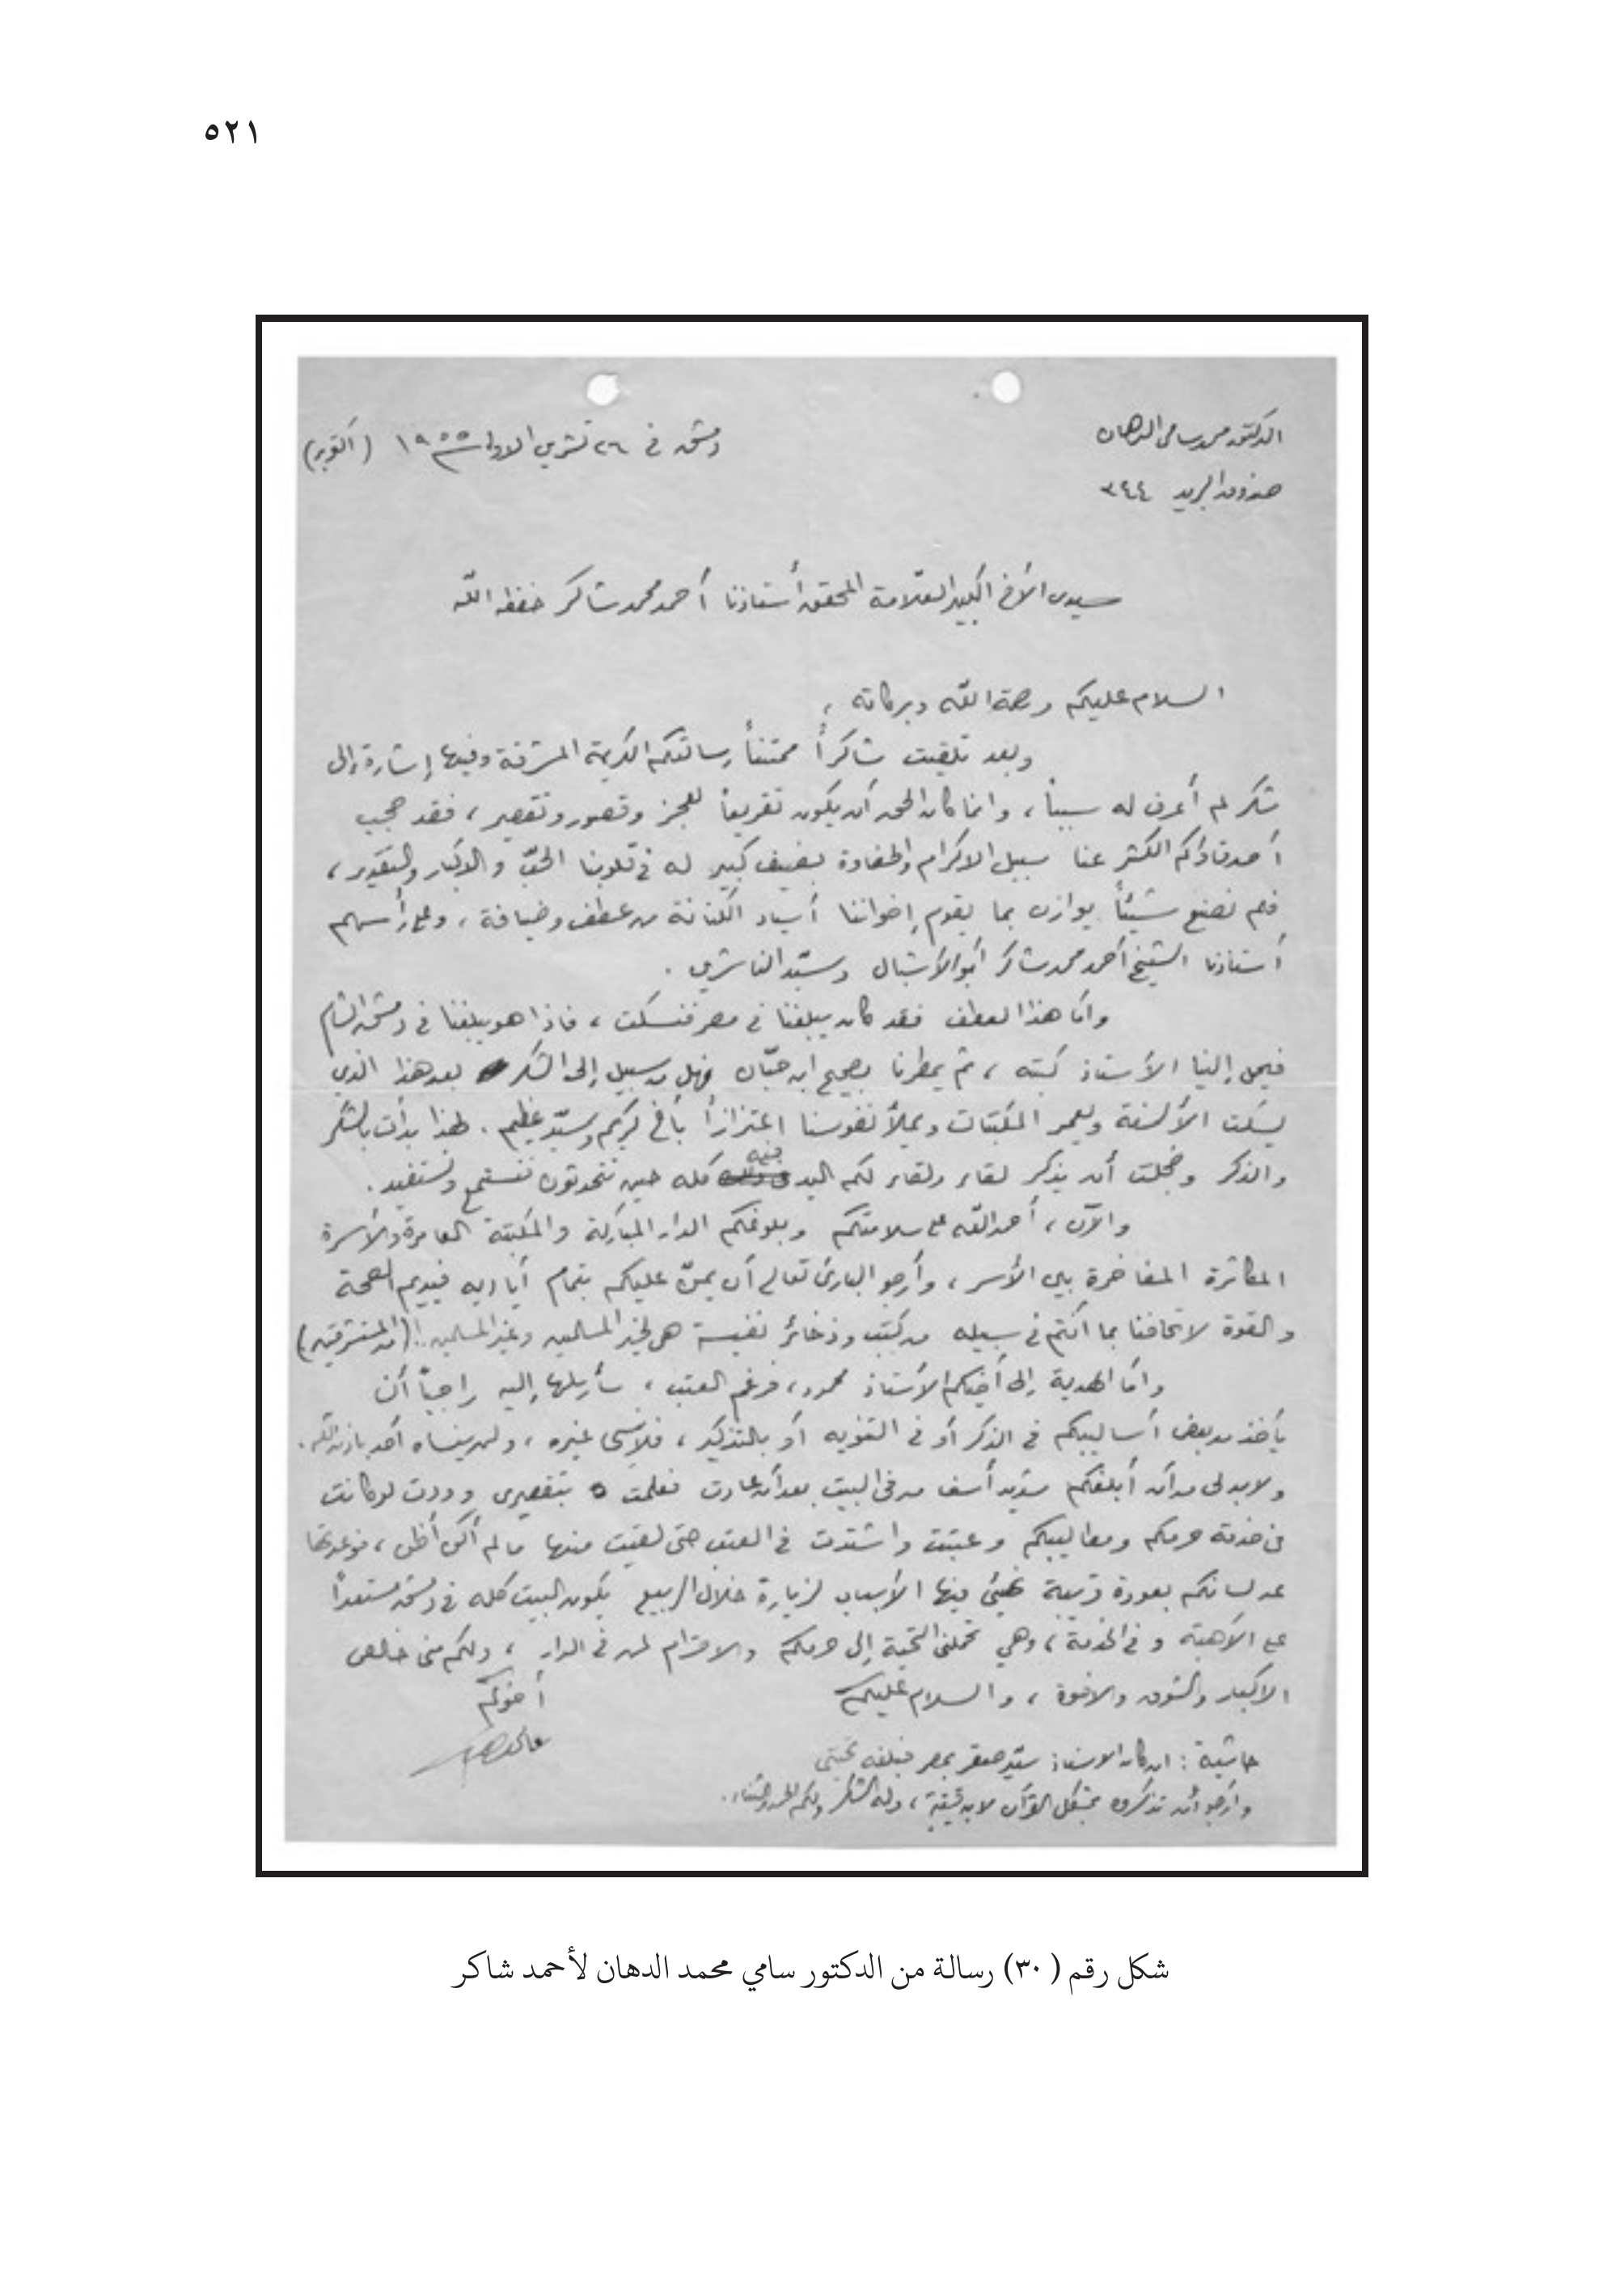 ٥٢١
الدكتور محمد سامي الدهان
دمشق في ٢٦ تشرين الاول ١٩٥٥ (أكتوبر)
صندوق البريد ٣٤٤
سيدي الأخ الكبير العلّامة المحقق أستاذنا أحمد محمد شاكر حفظه اللّه
السلام عليكم ورحمة اللّه وبركاته ،
وبعد تلقيت شاكراً ممتناً رسالتكم الكريمة المشرقة وفيها إشارة إلى
شكر لم أعرف له سبباً ، وانما كان الحق أن يكون تقريعاً لعجز وقصور وتقصير ، فقد حجب
أصدقاؤكم الكثر عنا سبيل الاكرام والحفاوة بضيف كبير له في قلوبنا الحبّ والاكبار والتقدير ،
فلم نصنع شيئاً يوازن بما يقوم إخواننا أسياد الكنانة من عطف وضيافة ، وعلى رأسهم
أستاذنا الشيخ أحمد محمد شاكر أبو الأشبال وسيّد الناشرين .
وأمّا هذا العطف فقد كان يبلغنا في مصر فنسكت ، فاذا هو يبلغنا في دمشق الشام
فيحمل إلينا الأستاذ كتبه ، ثم يمطرنا بصحيح ابن حبّان فهل من سبيل إلى الشكر بعد هذا الذي
يسكت الألسنة ويعمر المكتبات ويملأ نفوسنا اعتزازاً بأخ كريم وسيّد عظيم . لهذا بدأت بالشكر
والذكر وخجلت أن يذكر لقاء ولقاء لكم اليد فيه كله حين تتحدثون فنستمع ونستفيد .
والآن ، أحمد اللّه على سلامتكم وبلوغكم الدار المباركة والمكتبة العامرة والأسرة
المكاثرة المفاخرة بين الأسر ، وأرجو البارئ تعالى أن يمنّ عليكم بتمام أياديه فيديم الصحة
والقوة لاتحافنا بما أنتم في سبيله من كتب وذخائر نفيسة هي لخير المسلمين وغير المسلمين !! (من المستشرقين)
وأمّا الهدية إلى أخيكم الأستاذ محمود، فرغم العتب ، سأرسلها إليه راجياً أن
يأخذ من بعض أساليبكم في الذكر أو في التنويه أو بالتذكير ، فلا ينسى غيره ، ولن ينساه أحد باذن اللّه .
ولا بد لي من أن أبلغكم شديد أسف من في البيت بعد أن عادت فعلمت بتقصيري وودت لو كانت
في خدمة حرمكم ومطاليبكم وعتبت واشتدت في العتب حتى لقيت منها ما لم أكن أظن ، فوعدتها
عن لسانكم بعودة قريبة تهيئ فيها الأسباب لزيارة خلال الربيع يكون البيت كله في دمشق مستعداً
على الأهبة وفي الخدمة ، وهي تحملني التحية إلى حرمكم والاحترام لمن في الدار ، ولكم مني خالص
الاكبار والشوق والاخوة ، والسلام عليكم
أخوكم
حاشية : ان كان الاستاذ سيّد صقر بمصر فبلغه تحيتي
وأرجو أن تذكروه بمشكل القرآن لابن قتيبة ، وله الشكر ولكم الحمد والثناء .
شكل رقم (٣٠) رسالة من الدكتور سامي محمد الدهان لأحمد شاكر